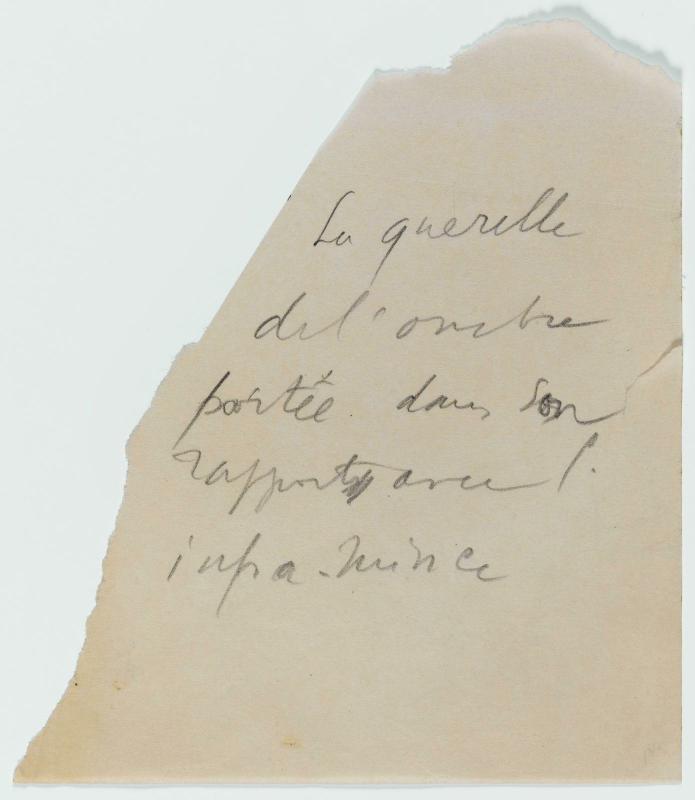 La querelle
de l'ombre
portée dans son
rapport avec l'
infra-mince